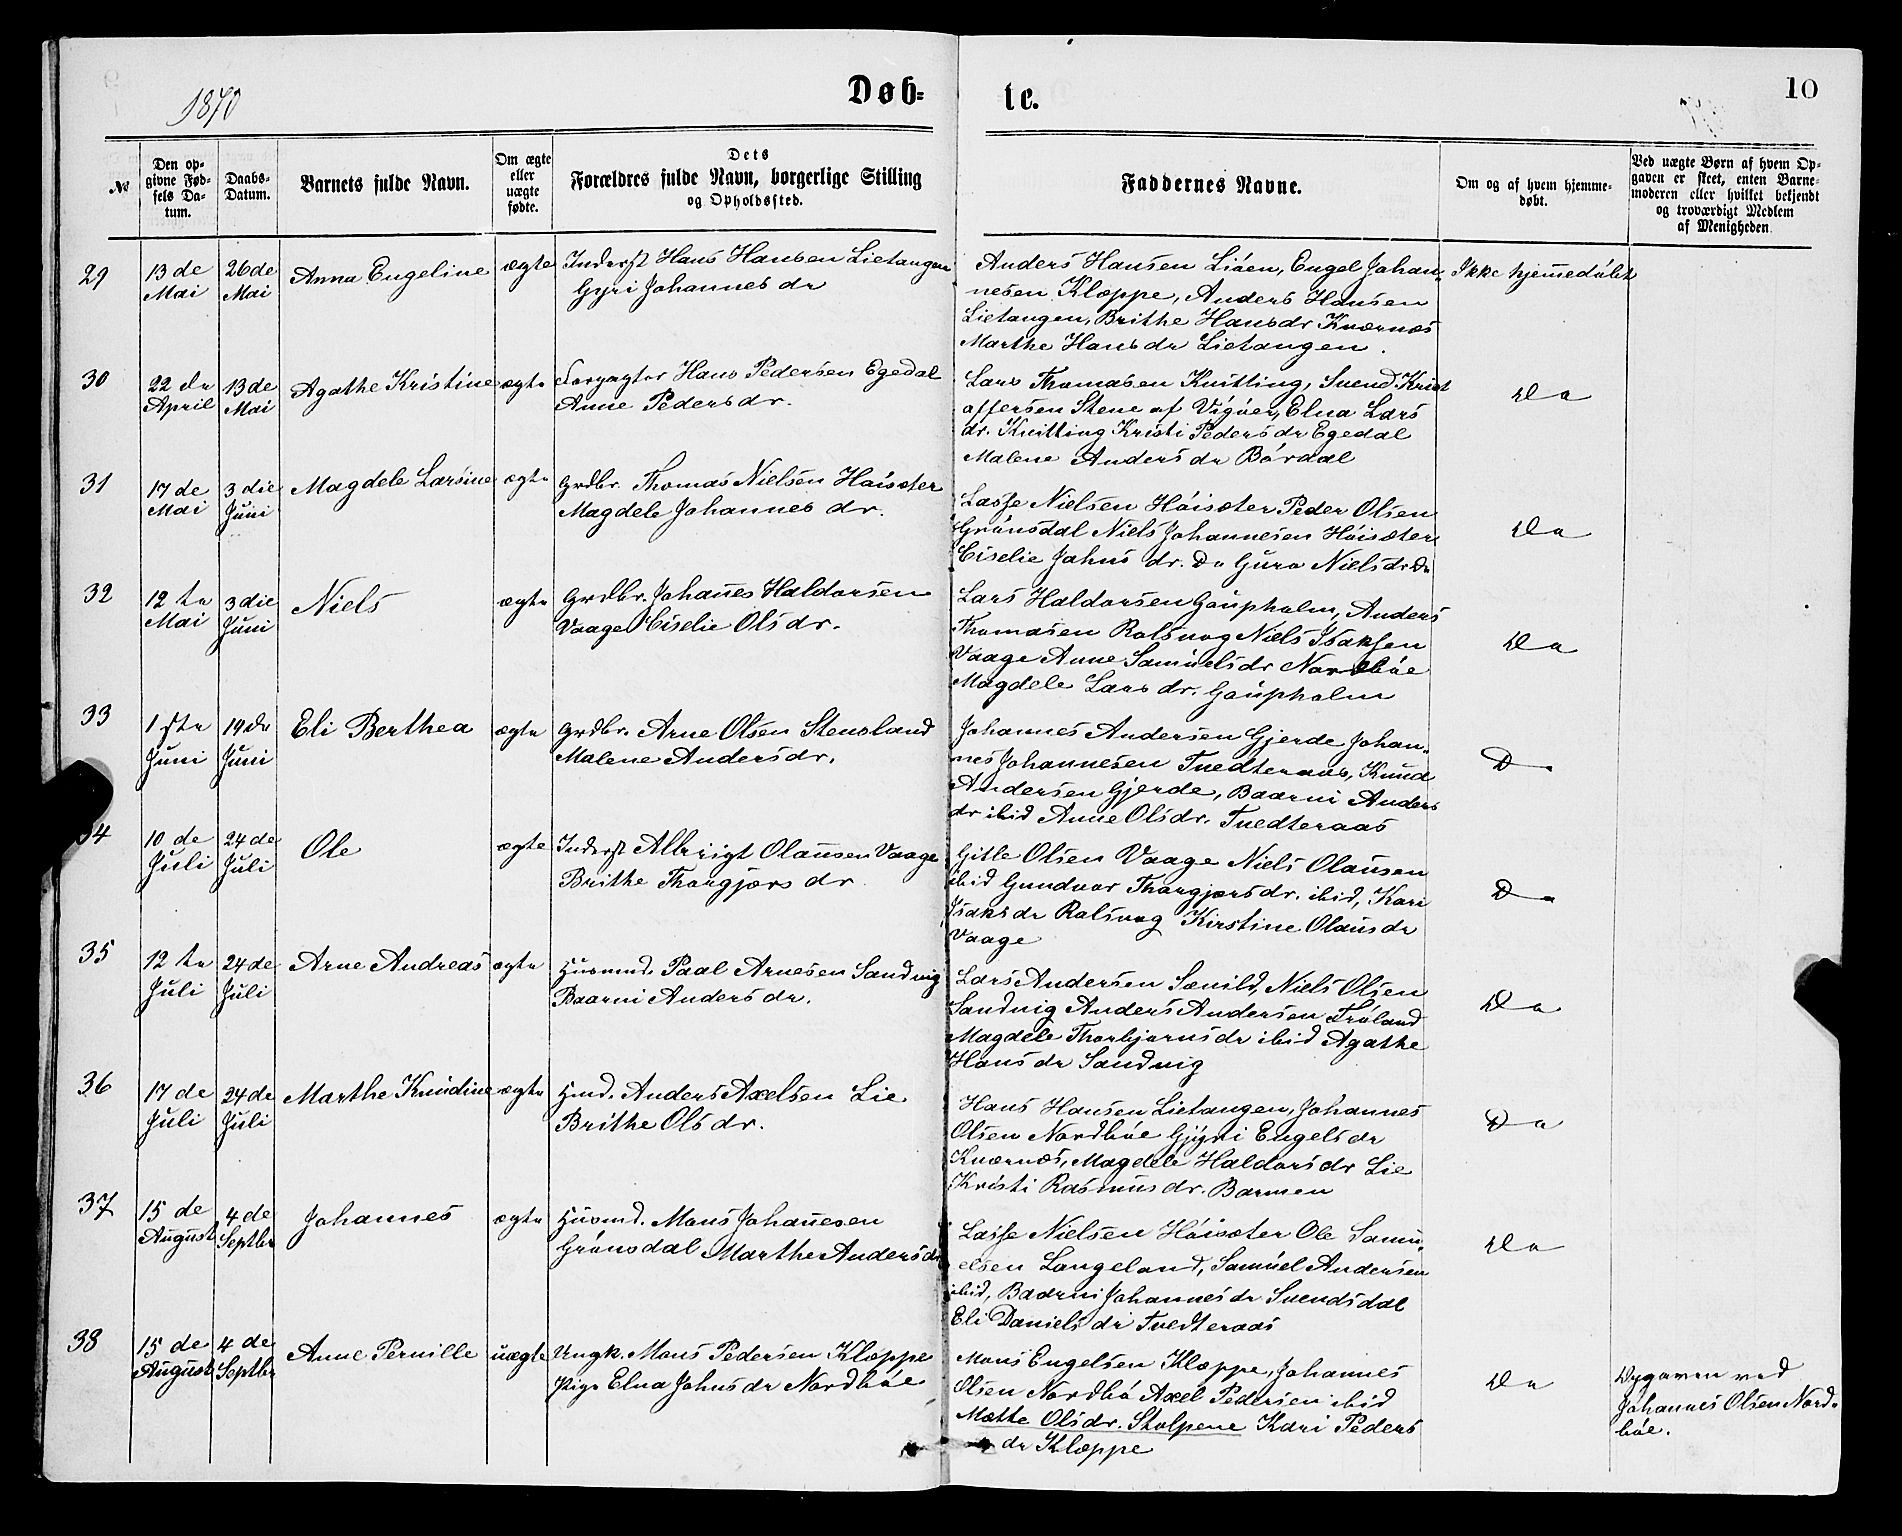 1870
Døb-
te.
10
№
Den op-
givne Fød-
sels Da-
tum.
Daabs-
Datum.
Barnets fulde Navn.
Om ægte
eller
uægte
fødte.
Dets
Forældres fulde Navn, borgerlige Stilling
og Opholdssted.
Faddernes Navne.
Om og af hvem hjemme-
døbt.
Ved uægte Børn af hvem Op-
gaven er skeet, enten Barne-
moderen eller hvilket bekjendt
og troværdigt Medlem
af Menigheden.
29
13de
Mai
26de
Mai
Anna Engeline
ægte
Inderst Hans Hansen Lietangen
Gyri Johannesdr
Anders Hansen Liöen, Engel Johan-
nesen Kloppe, Anders Hansen
Lietangen, Brithe Hansdr Knærnæs
Marthe Hansdr Lietangen.
Ikke hjemedöbt
30
22de
April
13de
Mai
Agathe Kristine
ægte
Forpagter Hans Pedersen Egedal
Anne Pedersdr.
Lars Thomasen Knitting, Svend Krist
offersen Stene af Vigöer, Elna Lars
dr. Knitting Kristi Pedersdr Egedal
Malene Andersdr Bördal
Do
31
17de
Mai
3die
Juni
Magdele Larsine
ægte
Grdbr. Thomas Nielsen Höisæter
Magdele Johannesdr.
Lasse Nielsen Höisæter Peder Olsen
Grönsdal Niels Johannesen Höisæter
Ciselie Johnsdr. Do Guro Nielsdr Do
Do
32
12te
Mai
3die
Juni
Niels
ægte
Grdbr. Johanes Haldorsen
Vaage Ciselie Olsdr.
Lars Haldorsen Goupholm, Anders
Thomasen Rolsvog Niels Isaksen
Vaage Anne Samuelsdr Nordböe
Magdele Larsdr. Goupholm
Do
33
1ste
Juni
19de
Juni
Eli Berthea
ægte
Grdbr. Arne Olsen Stensland
Malene Andersdr.
Johannes Andersen Gjerde Johan-
nes Johannesen Tvedteraas, Knud
Andersen Gjerde, Baarni Anders
dr ibid Anne Olsdr. Tvedteraas
Do
34
10de
Juli
24de
Juli
Ole
ægte
Inderst Albrigt Olausen Vaage
Brithe Thorgjersdr
Gitle Olsen Vaage Niels Olausen
ibid Gundvor Thorgjersdr. ibid, Kari
Isaksdr Rolsvog Kirstine Olausdr
Vaage
Do
35
12te
Juli
24de
Juli
Arne Andreas
ægte
Husmd. Paal Arnesen Sandvig
Baarni Andersdr.
Lars Andersen Sævild, Niels Olsen
Sandvig Anders Andersen Tröland
Magdele Thorbjornsdr ibid Agathe
Hansdr Sandvig
Do
36
17de
Juli
24de
Juli
Marthe Knudine
ægte
Hmd. Anders Axelsen Lie
Brithe Olsdr.
Hans Hansen Lietangen, Johannes
Olsen Nordböe Gjyri Engelsdr
Knærnæs, Magdele Haldorsdr Lie
Kristi Rasmusdr. Barmen
Do
37
15de
August
4de
Septbr
Johannes
ægte
Husmd. Mons Johanesen
Grönsdal Marthe Andersdr
Lasse Nielsen Höisæter Ole Samu-
elsen Langeland, Samuel Andersen
ibid, Baarni Johannesdr Svendsdal
Eli Danielsdr Tvedteraas
Do
38
15de
August
4de
Septbr
Anne Pernille
uægte
Ungk. Mons Pedersen Kloppe
Pige Elna Johnsdr Nordböe
Mons Engelsen Kloppe, Johannes
Olsen Nordbö Axel Pedersen ibid
Mætte Olsdr. Stolpene Kari Peders
dr Kloppe
Do
Opgaven ved
Johannes Olsen Nord-
böe.